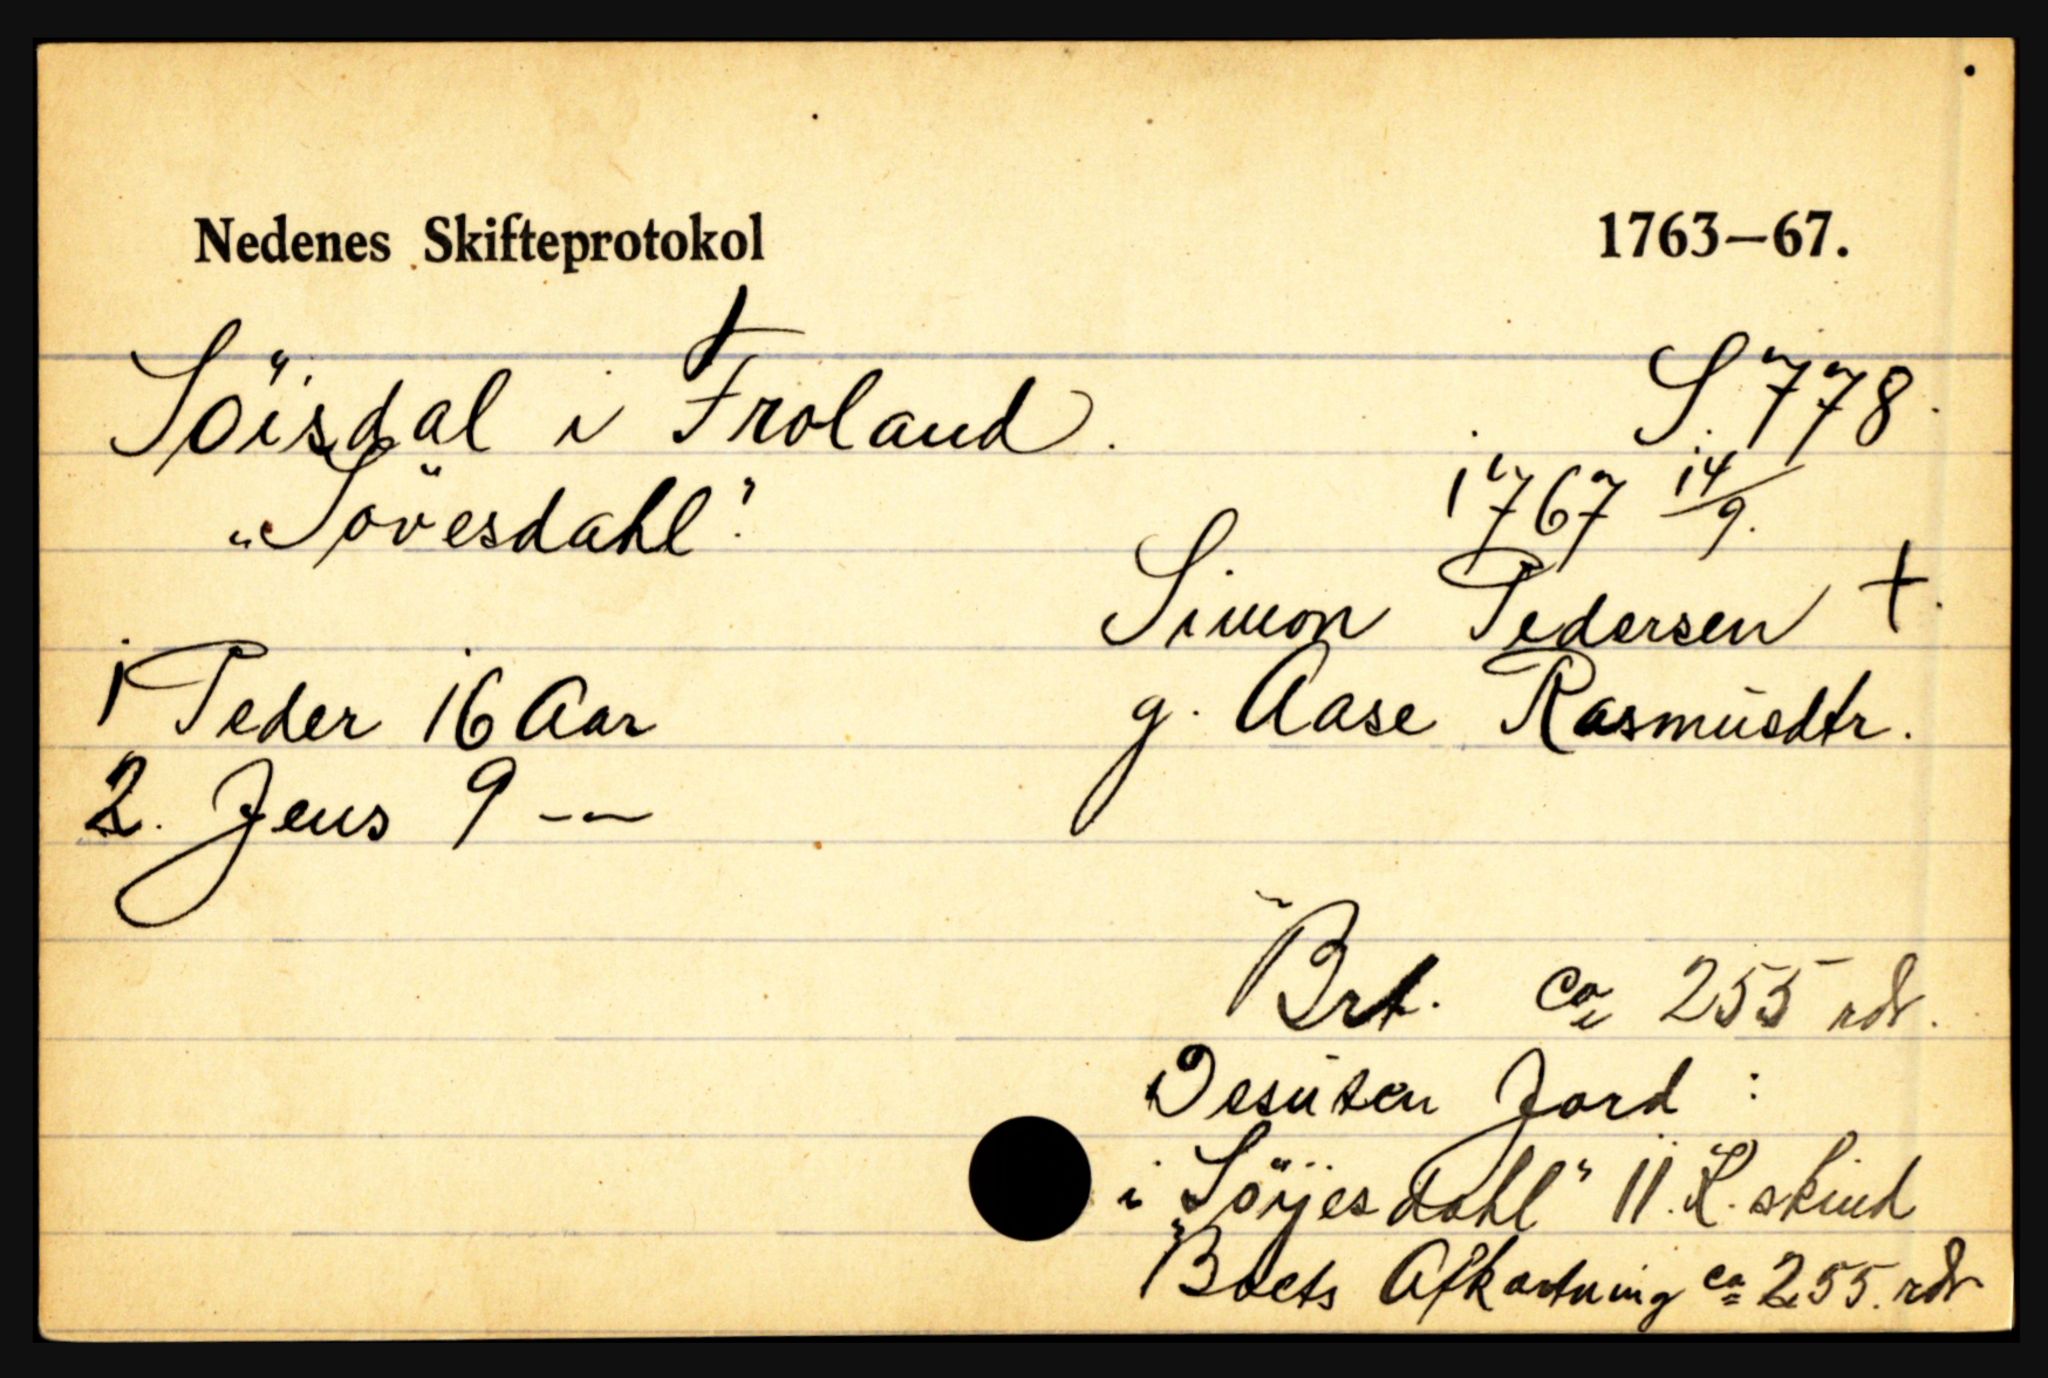 Nedenes Skifteprotokol 1763—67.
Söisdal i Froland. S. 778.
„Sövesdahl". 1767 14/9.
Simon Pedersen +.
1 Peder 16 Aar g. Aase Rasmusdtr.
2. Jens 9 -—
Brt. ca 255 rdr.
Desuten Jord :
i „Söijesdahl" 11. K. skind
Boets Afkortning ca 255. rdr